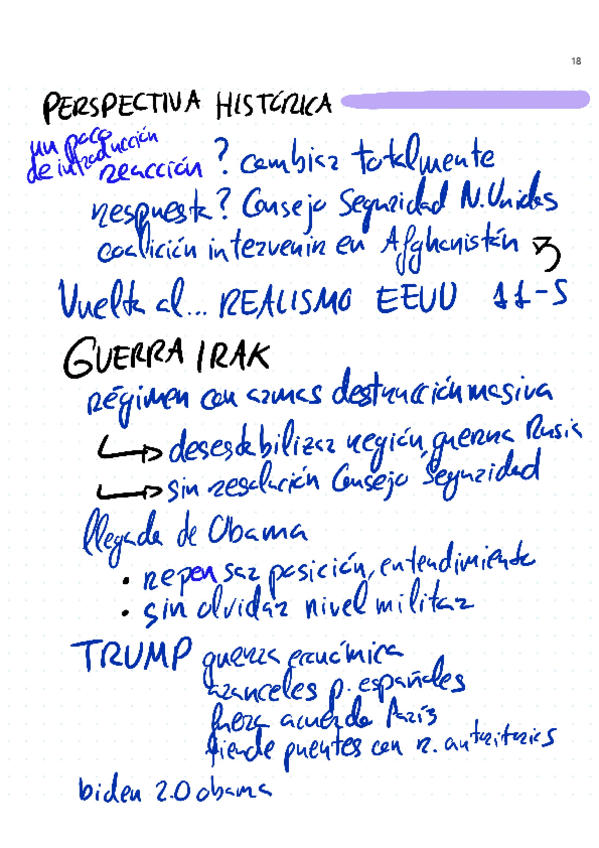 18
PERSPECTIVA HISTÓRICA
un poco
de introducción
reacción ? cambiar totalmente
respuesta? Consejo Seguridad N.Unidas
coalición intervenir en Afghanistán
Vuelta al... REALISMO EEUU 11-S
GUERRA IRAK
régimen con armas destrucción masiva
desestabilizar región, guerra Rusia
sin resolución Consejo Seguridad
llegada de Obama
• repensar posición, entendimiento
• sin olvidar nivel militar
TRUMP guerra económica
aranceles p. españoles
fuera acuerdo París
tiende puentes con r. autoritarios
biden 2.0 obama